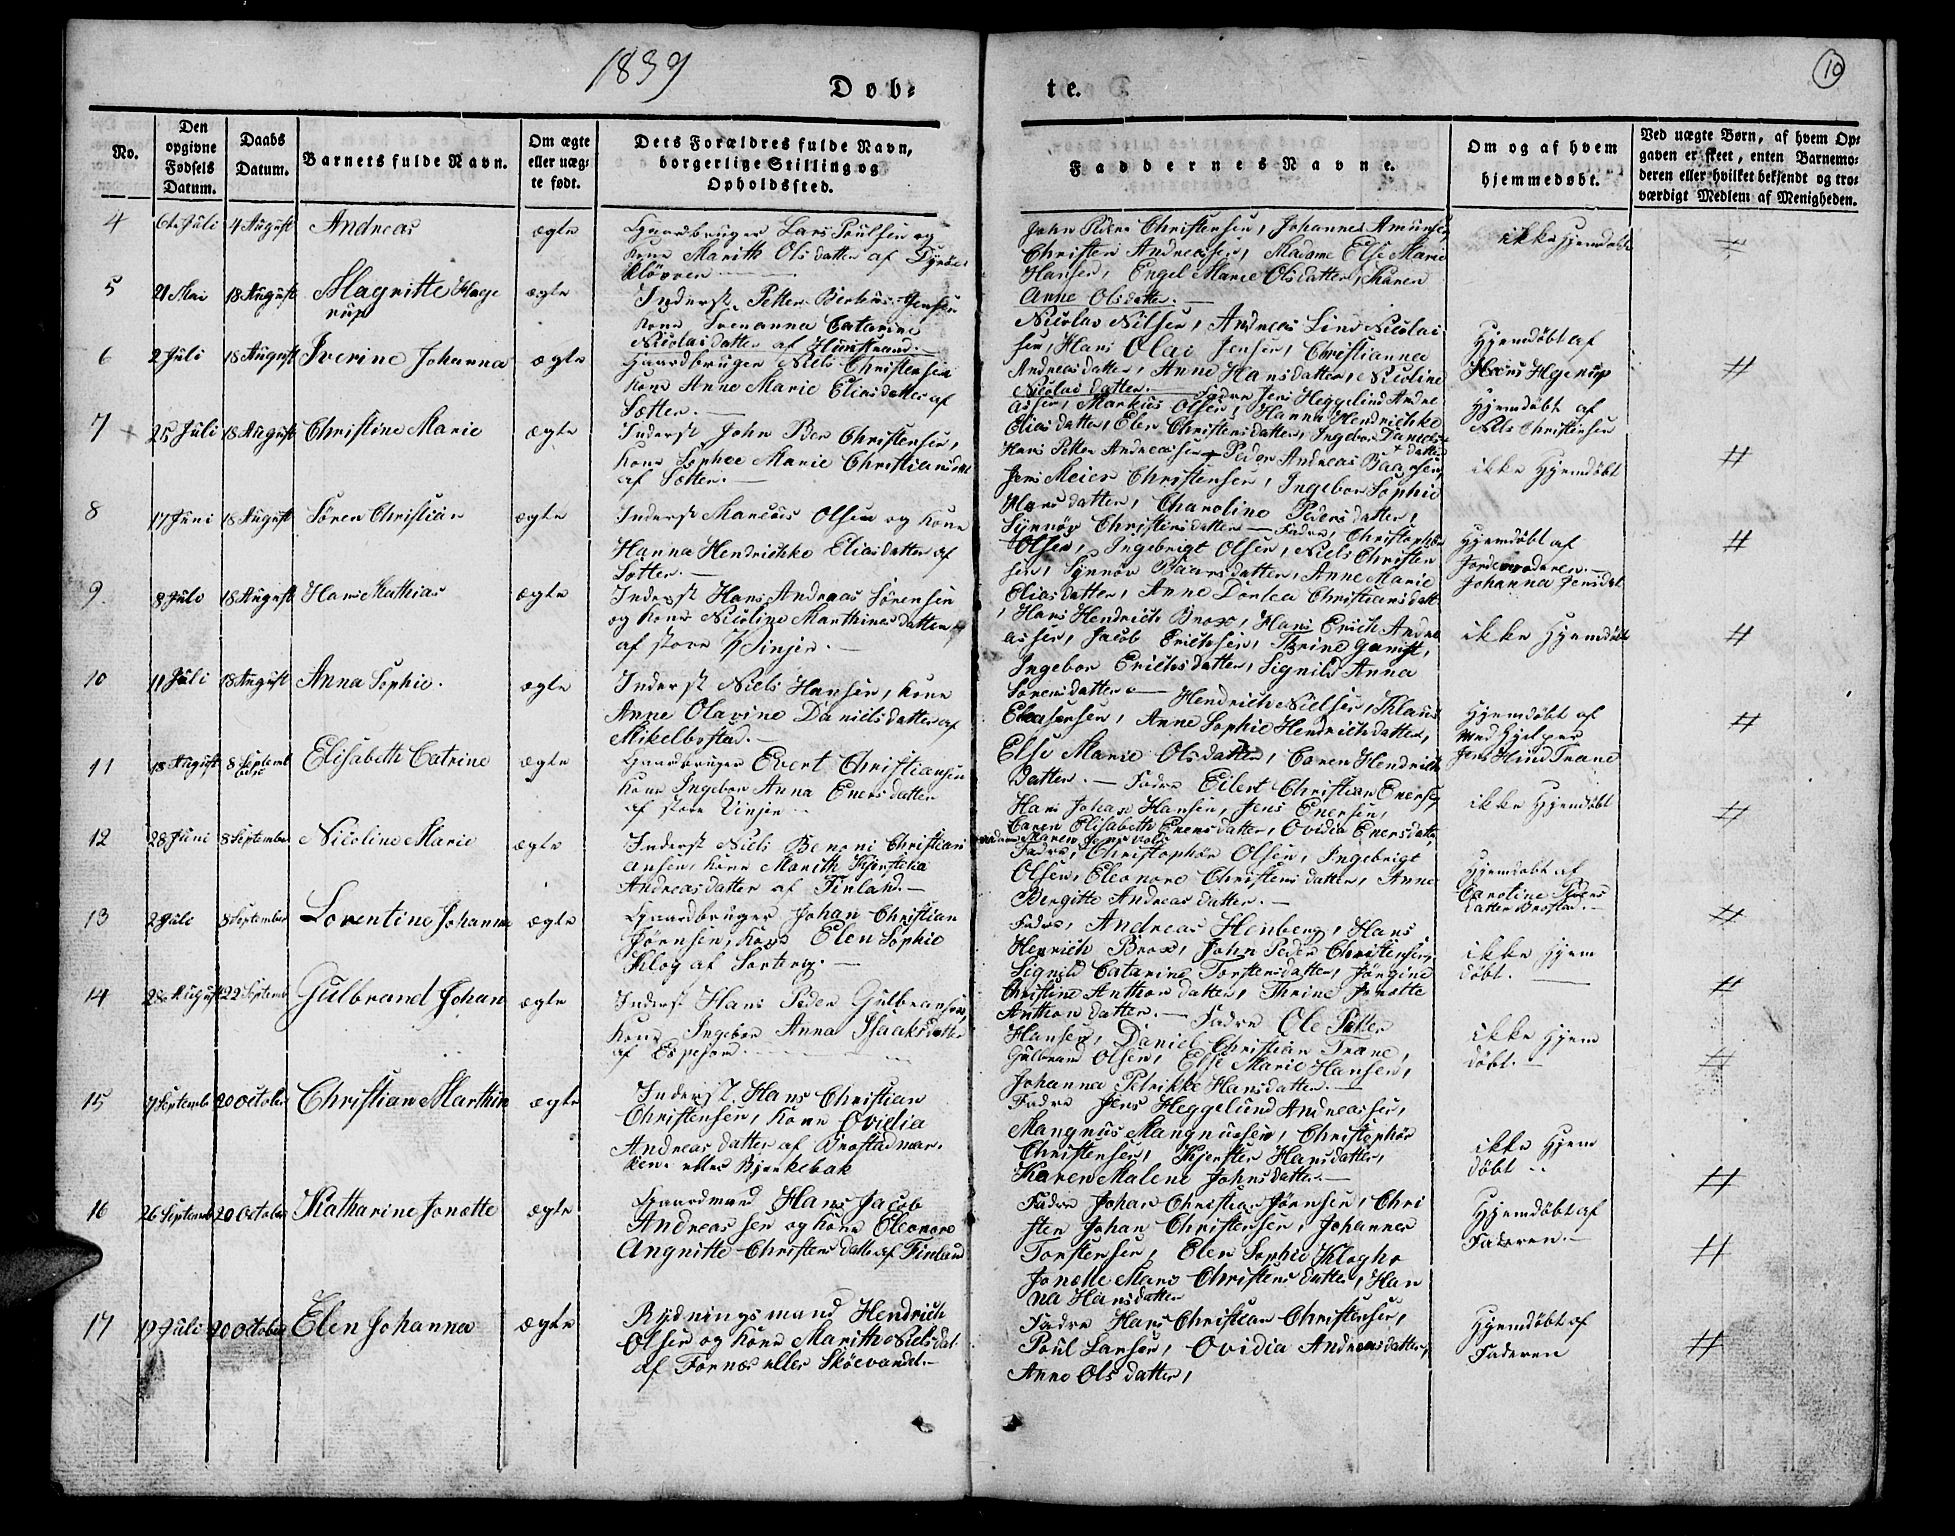 1839
Døb-
te.
10
No.
Den opgivne Fødsels Datum.
Daabs Datum.
Barnets fulde Navn.
Om ægte eller uægte født.
Dets Forældres fulde Navn, borgerlige Stilling og Opholdssted.
Faddernes Navne.
Om og af hvem hjemmedøbt.
Ved uægte Børn, af hvem Opgaven er skeet, enten Barnemoderen eller hvilket bekjendt og troværdigt Medlem af Menigheden.
4 6te Juli 4 August Andreas ægte
Gaardbruger Lars Poulsen og
Kone Marith Olsdatter af
John Peder Christensen, Johannes Amunsen
Christen Andreassen, Madame Else Marie
Hansen, Engel Marie Olsdatter, Karen
Anne Olsdatter.
ikke Hjemdøbt
5 21 Mai 18 August Magritte Hage
rup
ægte
Inderst Petter Jensen
Kone Catarine
Nicolaidatter af
Nicolai Nilsen, Andreas Lind Nicolai
sen, Hans Olai Jensen, Christianna
Andreasdatter, Anne Hansdatter, Nicoline
Nicolaidatter.
Hjemdøbt af
Hans Hgerup
6 2 Juli 18 August Iverine Johanna ægte
Gaardbruger Niels Christensen
Kone Anne Marie Eliasdatter af
Søtter.
Fadre Jens Heggelund Andre
assen, Markus Olsen, Hanna Hendrichke
Eliasdatter, Elen Christensdatter, Ingebor Daniels
datter
Hjemdøbt af
Niels Christensen
7 25 Juli 18 August Christine Marie ægte
Inderst John Peder Christensen,
Kone Sophie Marie Christiansdat
af Søtter.
Hans Petter Andreassen Peder Andreas Baarsen,
Jens Meier Christensen, Ingebor Sophie
datter, Charoline Pedersdatter,
Synnøv Christensdatter
ikke Hjemdøbt
8 17 Juni 18 August Sören Christian ægte
Inderst Marcus Olsen og Kone
Hanna Hendrichke Eliasdatter af
Søtter.
Fadre, Christophor
Olsen, Ingebrigt Olsen, Niels Christen
sen, Synnøv Baarsdatter, Anne Marie
Eliasdatter, Anne Dortea Christiansdatt
Hjemdøbt af
Jordemoderen
Johanna Jensdat
9. 8 Juli 18 August Hans Mathias ægte
Inderst Hans Andreas Sørensen
og Kone Nicoline Marthinesdatter
af store Vinjer.
Hans Hendrich Brox, Hans Erich Andre
assen, Jacob Erichsen, Thrine
Ingebor Erichsdatter, Signild Anna
Sørensdatter
ikke Hjemdøbt
10 11 Juli 18 August Anna Sophie. ægte
Inderst Niels Hansen, Kone
Anne Olavine Danielsdatter af
Mikelbostad.
Hendrich Nielsen, Klaus
Eleasersen, Anne Sophie Hendrichdatter,
Else Marie Olsdatter, Caren Hendrich
datter.
Hjemdøbt af
Medhjelper
Jens Hind Trane
11 18 August 8 Septemb Elisabeth Catrine ægte
Gaardbruger Evert Christiansen
Kone Ingebor Anna Enersdatter
af store Vinjer
Fadre Eilert Christian Enersen,
Hans Johan Hansen, Jens Enersen,
Caren Elisabeth Enersdatter, Ovidia Enersdatter,
ikke Hjemdøbt
12 28 Juni 8 September Nicoline Marie ægte
Inderst Niels Benoni Christian
ansen, Kone Marith Kjerstina
Andreasdatter af Finland.
Fadre, Christophor Olsen, Ingebrigt
Olsen, Eleonore Christensdatter, Anne
Bergitte Andreasdatter.
Hjemdøbt af
Caroline Peders
datter Brostad.
13 2 Juli 8 September Lorentine Johanna ægte
Gaardbruger Johan Christian
Jørnsen, Kone Elen Sophie
Klog af
Fadre, Andreas Henberg, Hans
Henrich Brox, John Peder Christensen,
Signild Catarine Torstensdatter, Jørgine
Christine Anthondatter, Thrine Jonette
Anthondatter.
ikke Hjem
døbt.
14 August 22 Septemb Gulbrand Johan ægte
Inderst Hans Peder Gulbransen,
Kone Ingebor Anna Isaaksdatter
af Espejord.
Fadre Ole Petter
Hansen, Daniel Christian Trane,
Gulbrand Olsen, Else Marie Hansen,
Johanna Petrikke Hansdatter.
ikke Hjem
døbt.
15 9 Septembr 20 October Christian Marthin ægte
Inderst Hans Christian
Christensen, Kone Ovidia
Andreasdatter af Brostadmar
ken eller Bjerkebak
Fadre Jens Heggelund Andreassen,
Mangnus Mangnussen, Christophor
Christensen, Kjersten Hansdatter,
Karen Malene Johnsdatter.
ikke Hjem
døbt
16 26 Septemb 20 October Katharine Jonette ægte
Gaardmand Hans Jacob
Andreassen og Kone Eleonore
Angnitte Christensdatter af Finland
Fadre Johan Christian Jørnsen, Chri
sten Johan Christensen, Johannes
Torstensen, Elen Sophie Klogho
Jonette Mars Christensdatter, Han
na Hansdatter
Hjemdøbt af
Faderen.
17 19 Juli 20 October Elen Johanna ægte
Rydningsmand Hendrich
Olsen og Kone Marith Nielsdat
af Fornæs eller Skøevandet.
Fadre Hans Christian Christensen,
Poul Larsen, Ovidia Andreasdatter,
Anne Olsdatter,
Hjemdøbt af
Faderen